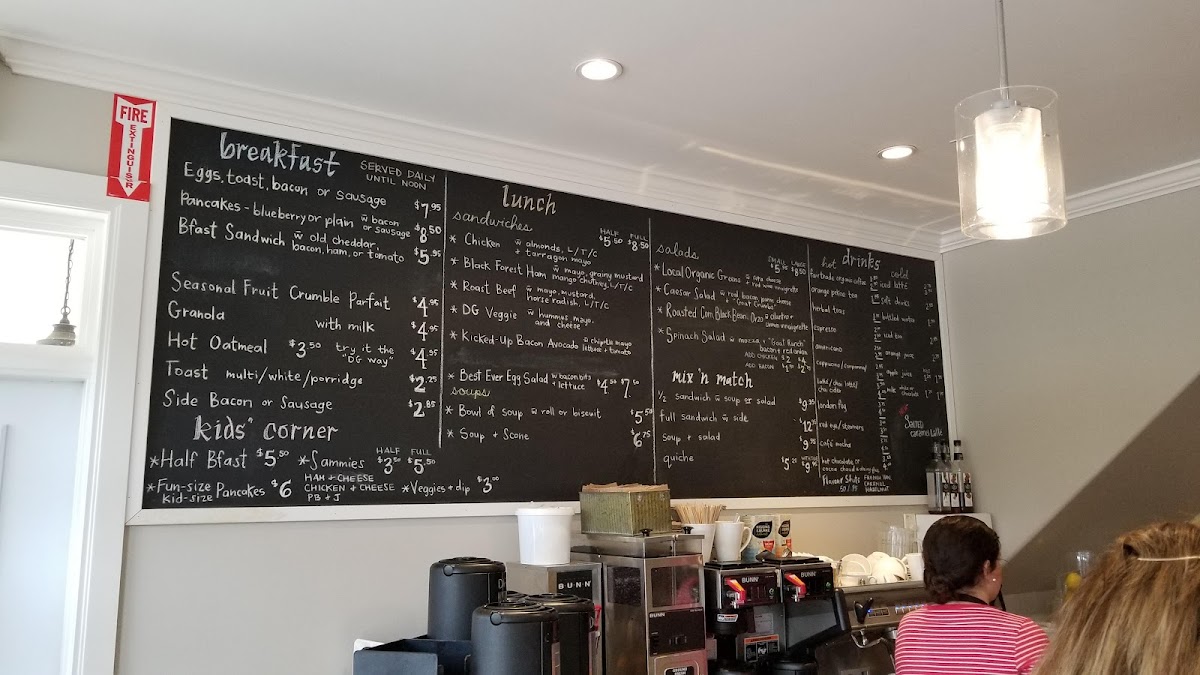 FIRE
EXTINGUISHER
breakfast
SERVED DAILY
UNTIL NOON
Eggs, toast, bacon or sausage $7.95
Pancakes - blueberry or plain w bacon
or sausage $8.50
Bfast Sandwich w old cheddar,
bacon, ham, or tomato $5.95
Seasonal Fruit Crumble Parfait $4.95
Granola with milk $4.95
Hot Oatmeal $3.50 try it the
"DG way" $4.95
Toast multi/white/porridge $2.25
Side Bacon or Sausage $2.85
kids' corner
*Half Bfast $5.50
*Fun-size Pancakes $6
kid-size
*Sammies HALF $3.50 FULL $5.50
HAM + CHEESE
CHICKEN + CHEESE
PB + J
*Veggies + dip $3.00
lunch
sandwiches HALF $5.50 FULL $8.50
* Chicken w almonds, L/T/C
+ tarragon mayo
* Black Forest Ham w mayo, grainy mustard
mango chutney, L/T/C
* Roast Beef w mayo, mustard,
horse radish, L/T/C
* DG Veggie w hummus, mayo,
and cheese
* Kicked-Up Bacon Avocado w chipotle mayo
lettuce + tomato
* Best Ever Egg Salad w bacon bits
+ lettuce $4.50 $7.50
soups
* Bowl of soup w roll or biscuit $5.50
* Soup + Scone $6.75
salads SMALL LARGE $8.50
* Local Organic Greens w feta cheese
+ red wine vinaigrette
* Caesar Salad w red bacon, parm cheese
+ "Goat Crumbs"
* Roasted Corn, Black Bean, Orzo w cilantro +
* Spinach Salad w mozza + "Goat Ranch"
bacon + red onion
ADD CHICKEN $2 $4
ADD BACON
mix 'n match
1/2 sandwich w soup or salad $9.95
full sandwich w side $12.95
soup + salad $9.95
quiche $5.25
drinks
hot
fair trade organic coffee
orange pekoe tea
herbal teas
espresso
americano
cappuccino/
latte/chai latte/
chai cider
london fog
red eye/steamers
café mocha
hot chocolate or
Flavour Shots
.50/.75
FRENCH VAN.
CARAMEL
HAZELNUT
cold
iced latte
soft drinks
bottled water
iced tea
orange juice
apple juice
milk white or
chocolate
Salted
caramel Latte
BUNN
BUNN
BUNN
BUNN